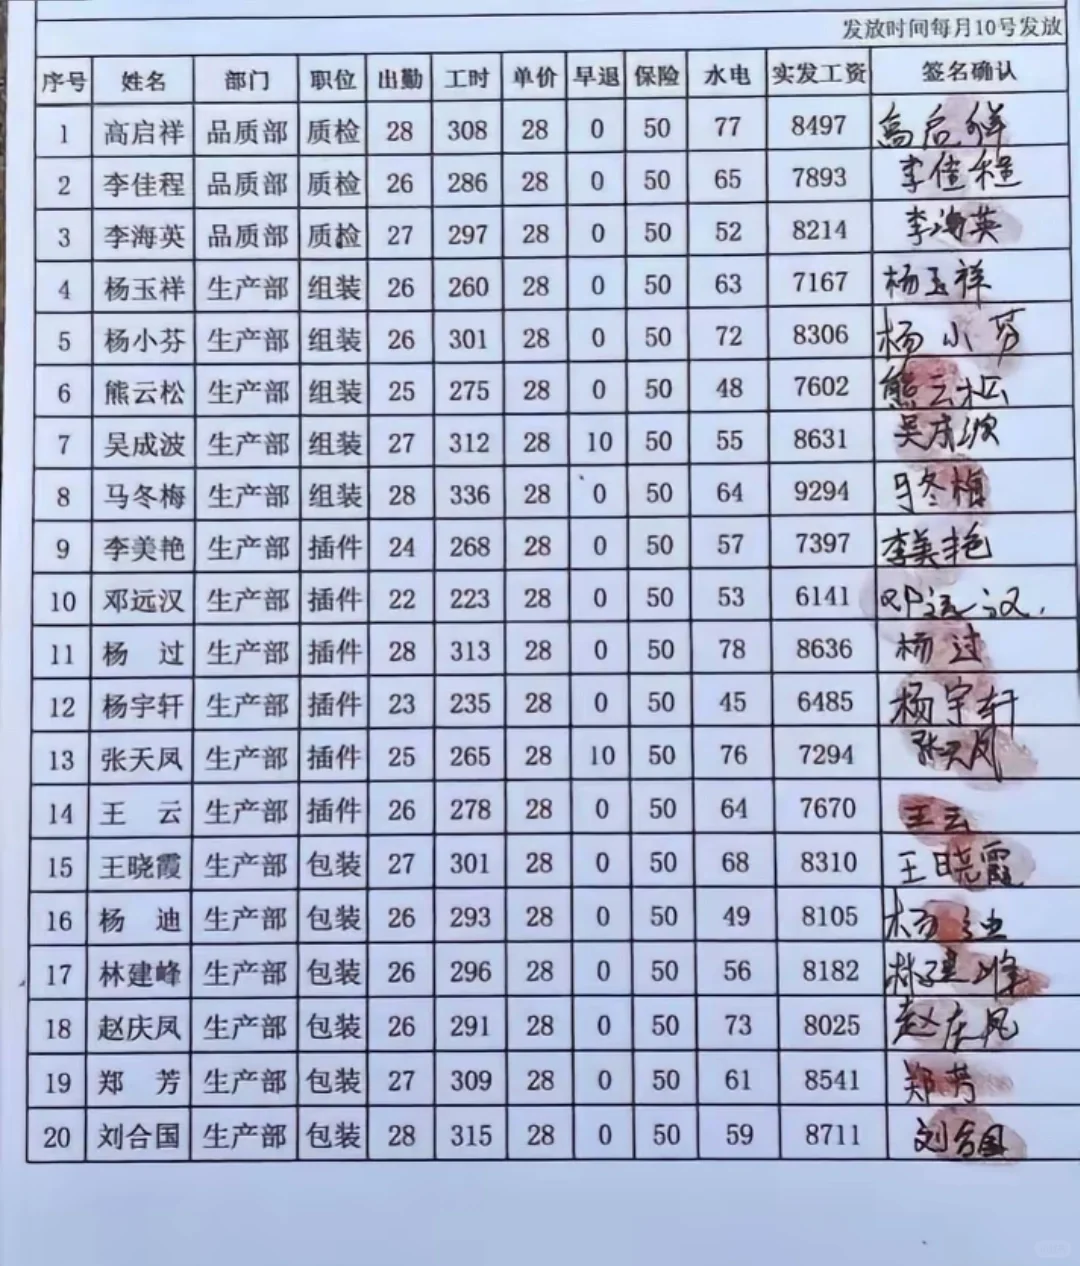 发放时间每月10号发放
序号 姓名 部门 职位 出勤 工时 单价 早退 保险 水电 实发工资 签名确认
1 高启祥 品质部 质检 28 308 28 0 50 77 8497 高启祥
2 李佳程 品质部 质检 26 286 28 0 50 65 7893 李佳程
3 李海英 品质部 质检 27 297 28 0 50 52 8214 李海英
4 杨玉祥 生产部 组装 26 260 28 0 50 63 7167 杨玉祥
5 杨小芬 生产部 组装 26 301 28 0 50 72 8306 杨小芬
6 熊云松 生产部 组装 25 275 28 0 50 48 7602 熊云松
7 吴成波 生产部 组装 27 312 28 10 50 55 8631 吴成波
8 马冬梅 生产部 组装 28 336 28 0 50 64 9294 马冬梅
9 李美艳 生产部 插件 24 268 28 0 50 57 7397 李美艳
10 邓远汉 生产部 插件 22 223 28 0 50 53 6141 邓远汉.
11 杨 过 生产部 插件 28 313 28 0 50 78 8636 杨过
12 杨宇轩 生产部 插件 23 235 28 0 50 45 6485 杨宇轩
13 张天凤 生产部 插件 25 265 28 10 50 76 7294 张天凤
14 王 云 生产部 插件 26 278 28 0 50 64 7670 王云
15 王晓霞 生产部 包装 27 301 28 0 50 68 8310 王晓霞
16 杨 迪 生产部 包装 26 293 28 0 50 49 8105 杨迪
17 林建峰 生产部 包装 26 296 28 0 50 56 8182 林建峰
18 赵庆凤 生产部 包装 26 291 28 0 50 73 8025 赵庆凤
19 郑 芳 生产部 包装 27 309 28 0 50 61 8541 郑芳
20 刘合国 生产部 包装 28 315 28 0 50 59 8711 刘合国